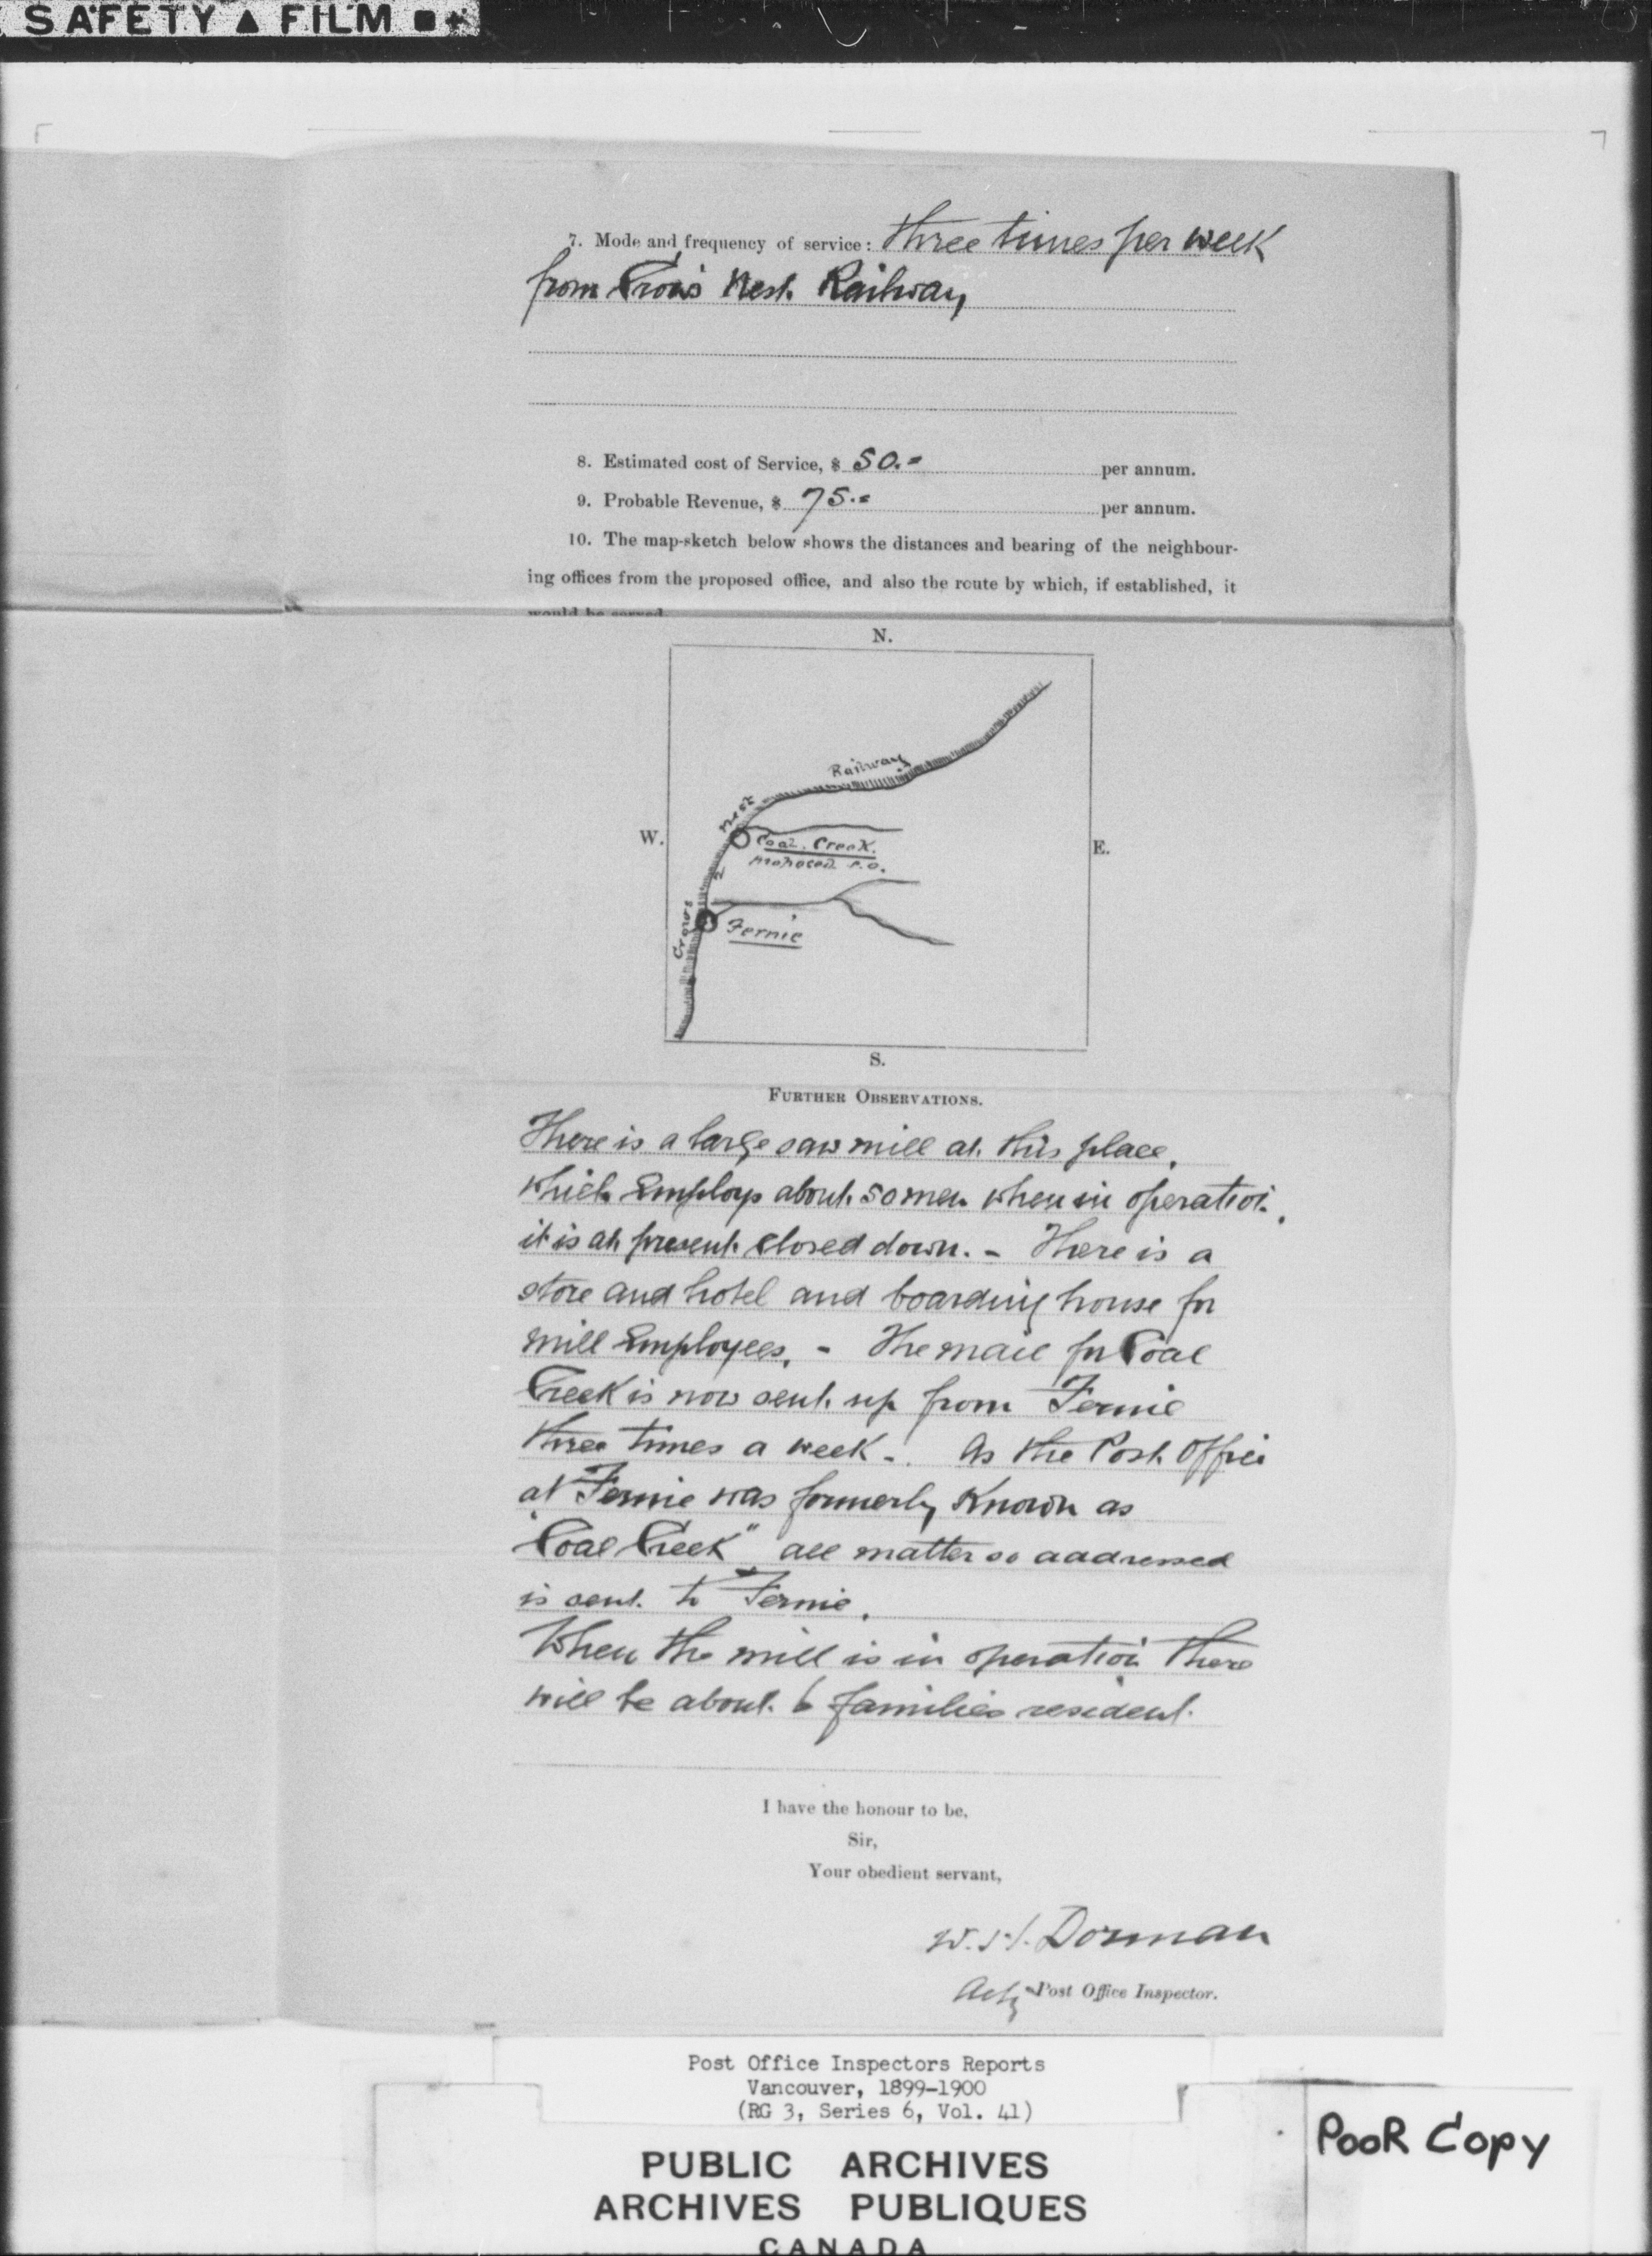 SAFETY ▲ FILM ■
7. Mode and frequency of service: three times per week
from Crow's Nest Railway
8. Estimated cost of Service, $ 50.= per annum.
9. Probable Revenue, $ 75.= per annum.
10. The map-sketch below shows the distances and bearing of the neighbour-
ing offices from the proposed office, and also the route by which, if established, it
would be served.
N.
Railway
Nest
W.
Coal Creek.
E.
proposed P.O.
2
Crows
Fernie
S.
FURTHER OBSERVATIONS.
There is a large saw mill at this place,
which Employs about 50 men when in operation.
it is at present closed down. - There is a
store and hotel and boarding house for
mill Employees. - The mail for Coal
Creek is now sent up from Fernie
three times a week -. As the Post Office
at Fernie was formerly Known as
"Coal Creek" all matter so addressed
is sent to Fernie.
When the mill is in operation there
will be about 6 families resident.
I have the honour to be,
Sir,
Your obedient servant,
W. H. Dorman
Actg Post Office Inspector.
Post Office Inspectors Reports
Vancouver, 1899-1900
(RG 3, Series 6, Vol. 41)
PUBLIC ARCHIVES
ARCHIVES PUBLIQUES
CANADA
POOR COPY